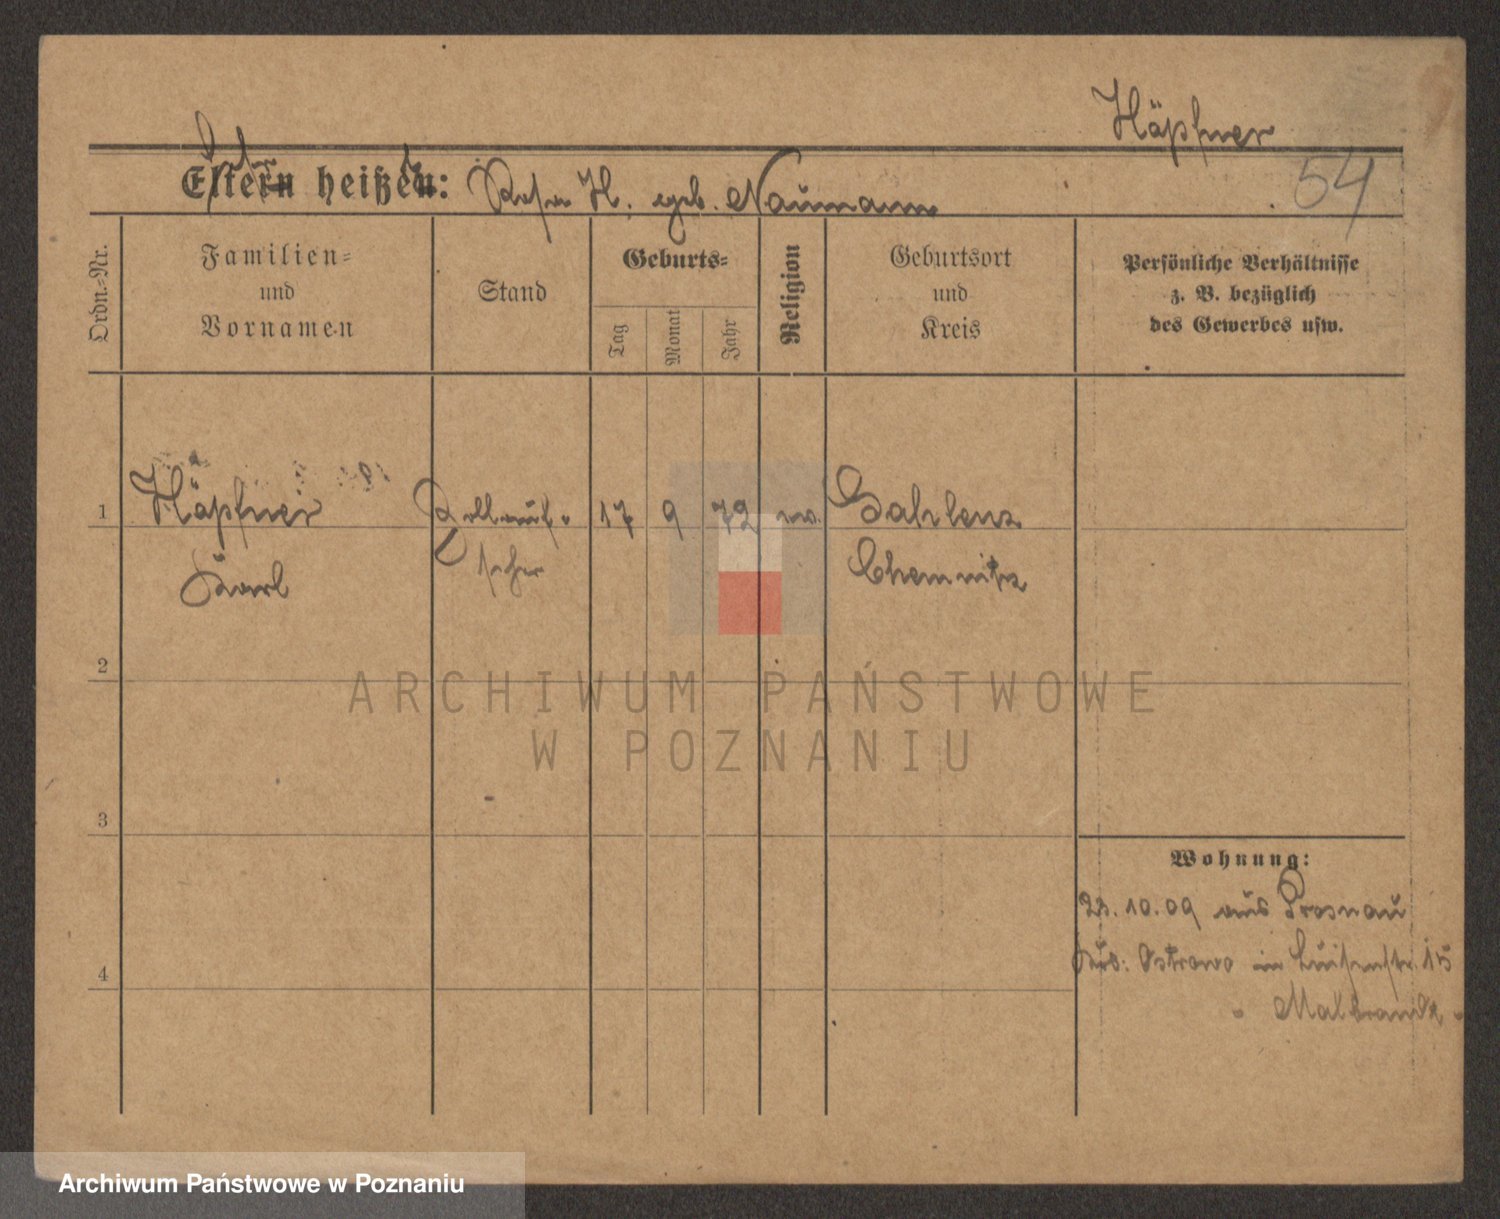 Häpfner
Eltern heißen: Rosa H. geb. Naumann
54
Ordn.-Nr.
Familien=
und
Vornamen
Stand
Geburts=
Tag
Monat
Jahr
Religion
Geburtsort
und
Kreis
Persönliche Verhältnisse
z. B. bezüglich
des Gewerbes usw.
1
Häpfner
Karl
17
9
72
Chemnitz
2
3
4
Wohnung:
.10.09 aus Prosnau
Ostrowo Luisenstr. 15
Malbrandt
ARCHIWUM PAŃSTWOWE
W POZNANIU
Archiwum Państwowe w Poznaniu